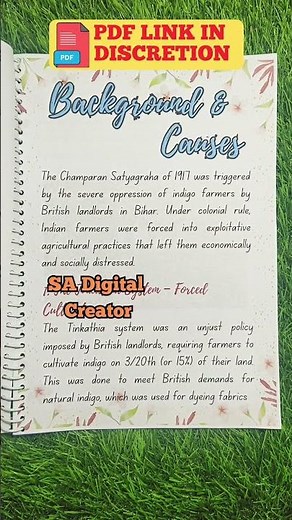 PDF LINK IN
DISCRETION
PDF
Background &
Causes
The Champaran Satyagraha of 1917 was triggered
by the severe oppression of indigo farmers by
British landlords in Bihar. Under colonial rule,
Indian farmers were forced into exploitative
agricultural practices that left them economically
and socially distressed.
System – Forced
SA Digital
Creator
The Tinkathia system was an unjust policy
imposed by British landlords, requiring farmers to
cultivate indigo on 3/20th (or 15%) of their land.
This was done to meet British demands for
natural indigo, which was used for dyeing fabrics